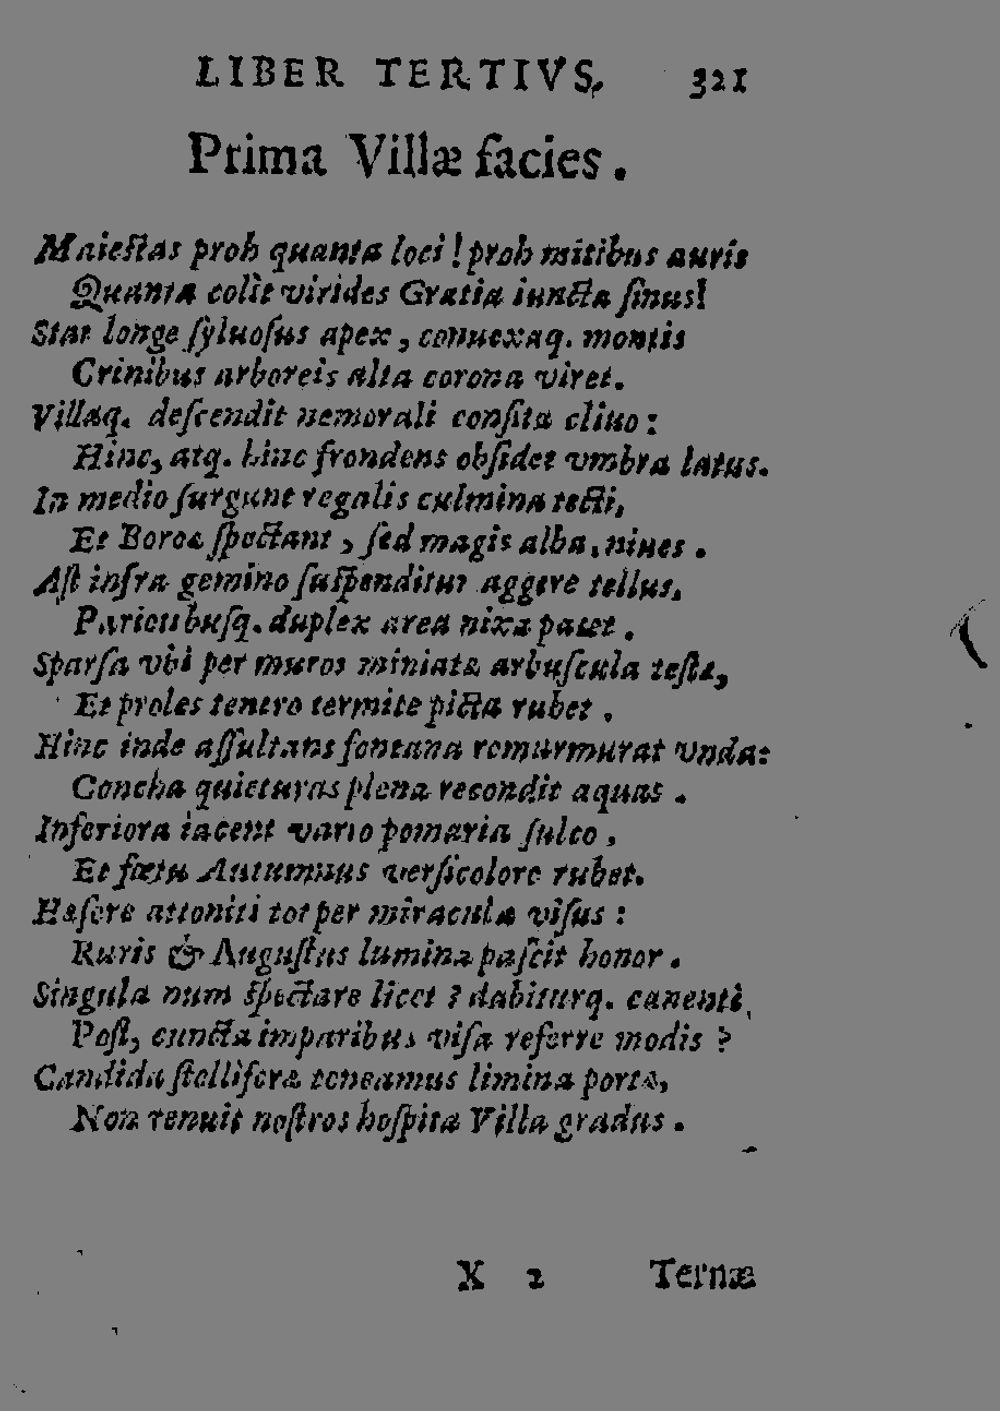 LIBER TERTIVS. 321
Prima Villæ facies.
Maiestas proh quanta loci! proh mitibus auris
Quanta colit virides Gratia iuncta sinus!
Stat longe syluosus apex, conuexaq. montis
Crinibus arboreis alta corona viret.
Villaq. descendit nemorali consita cliuo:
Hinc, atq. hinc frondens obsidet vmbra latus.
In medio surgunt regalis culmina tecti,
Et Boreæ spectant, sed magis alba, niues.
Ast infra gemino suspenditur aggere tellus,
Parietibusq. duplex area nixa patet.
Sparsa vbi per muros miniata arbuscula testa,
Et proles tenero termite picta rubet.
Hinc inde assultans fontana remurmurat vnda:
Concha quieturas plena recondit aquas.
Inferiora iacent vario pomaria sulco,
Et fœtu Autumnus versicolore rubet.
Hæsere attoniti tot per miracula visus:
Ruris & Augustus lumina pascit honor.
Singula num spectare licet? dabiturq. canenti
Post, cuncta imparibus visa referre modis?
Candida stelliferæ teneamus limina portæ,
Non tenuit nostros hospita Villa gradus.
X 2 Ternæ